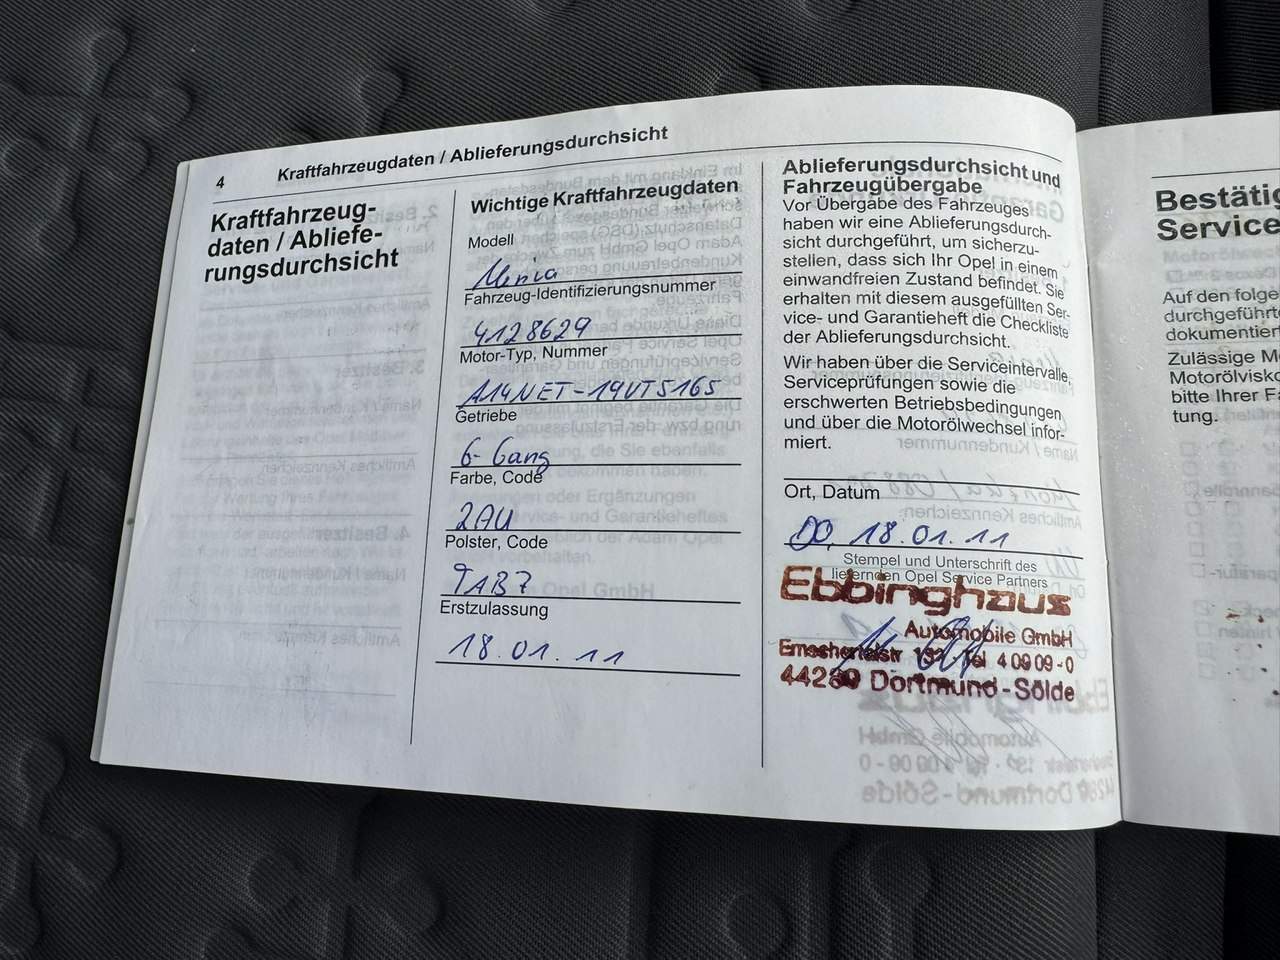 4
Kraftfahrzeugdaten / Ablieferungsdurchsicht
Kraftfahrzeug-
daten / Abliefe-
rungsdurchsicht
Wichtige Kraftfahrzeugdaten
Modell
Meriva
Fahrzeug-Identifizierungsnummer
4128629
Motor-Typ, Nummer
A14NET-19VT5165
Getriebe
6-Gang
Farbe, Code
2AU
Polster, Code
TAB7
Erstzulassung
18.01.11
Ablieferungsdurchsicht und
Fahrzeugübergabe
Vor Übergabe des Fahrzeuges
haben wir eine Ablieferungsdurch-
sicht durchgeführt, um sicherzu-
stellen, dass sich Ihr Opel in einem
einwandfreien Zustand befindet. Sie
erhalten mit diesem ausgefüllten Ser-
vice- und Garantieheft die Checkliste
der Ablieferungsdurchsicht.
Wir haben über die Serviceintervalle,
Serviceprüfungen sowie die
erschwerten Betriebsbedingungen
und über die Motorölwechsel infor-
miert.
Ort, Datum
DO, 18.01.11
Stempel und Unterschrift des
liefernden Opel Service Partners
Ebbinghaus
Automobile GmbH
Emschertalstr 132 Tel 4 09 09-0
44289 Dortmund-Sölde
Bestätig
Service
Auf den folge
durchgeführte
dokumentier
Zulässige M
Motorölvisko
bitte Ihrer Fa
tung.